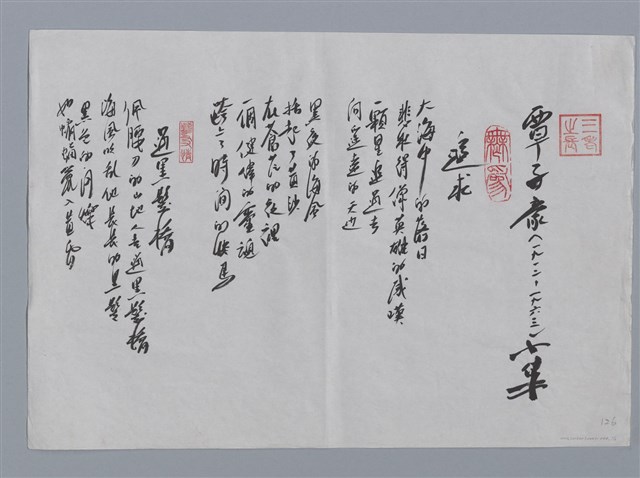 覃子豪(一九一二-一九六三)小集
追求
大海中的落日
悲壯得像英雄的感嘆
一顆星追過去
向遙遠的天邊
黑夜的海風
括起了黃沙
在蒼茫的夜裡
一個健偉的靈魂
跨上了時間的快馬
過黑髮橋
佩腰刀的山地人走過黑髮橋
海風吹亂他長長的黑髮
黑色的閃爍
如蝙蝠竄入黃昏
126